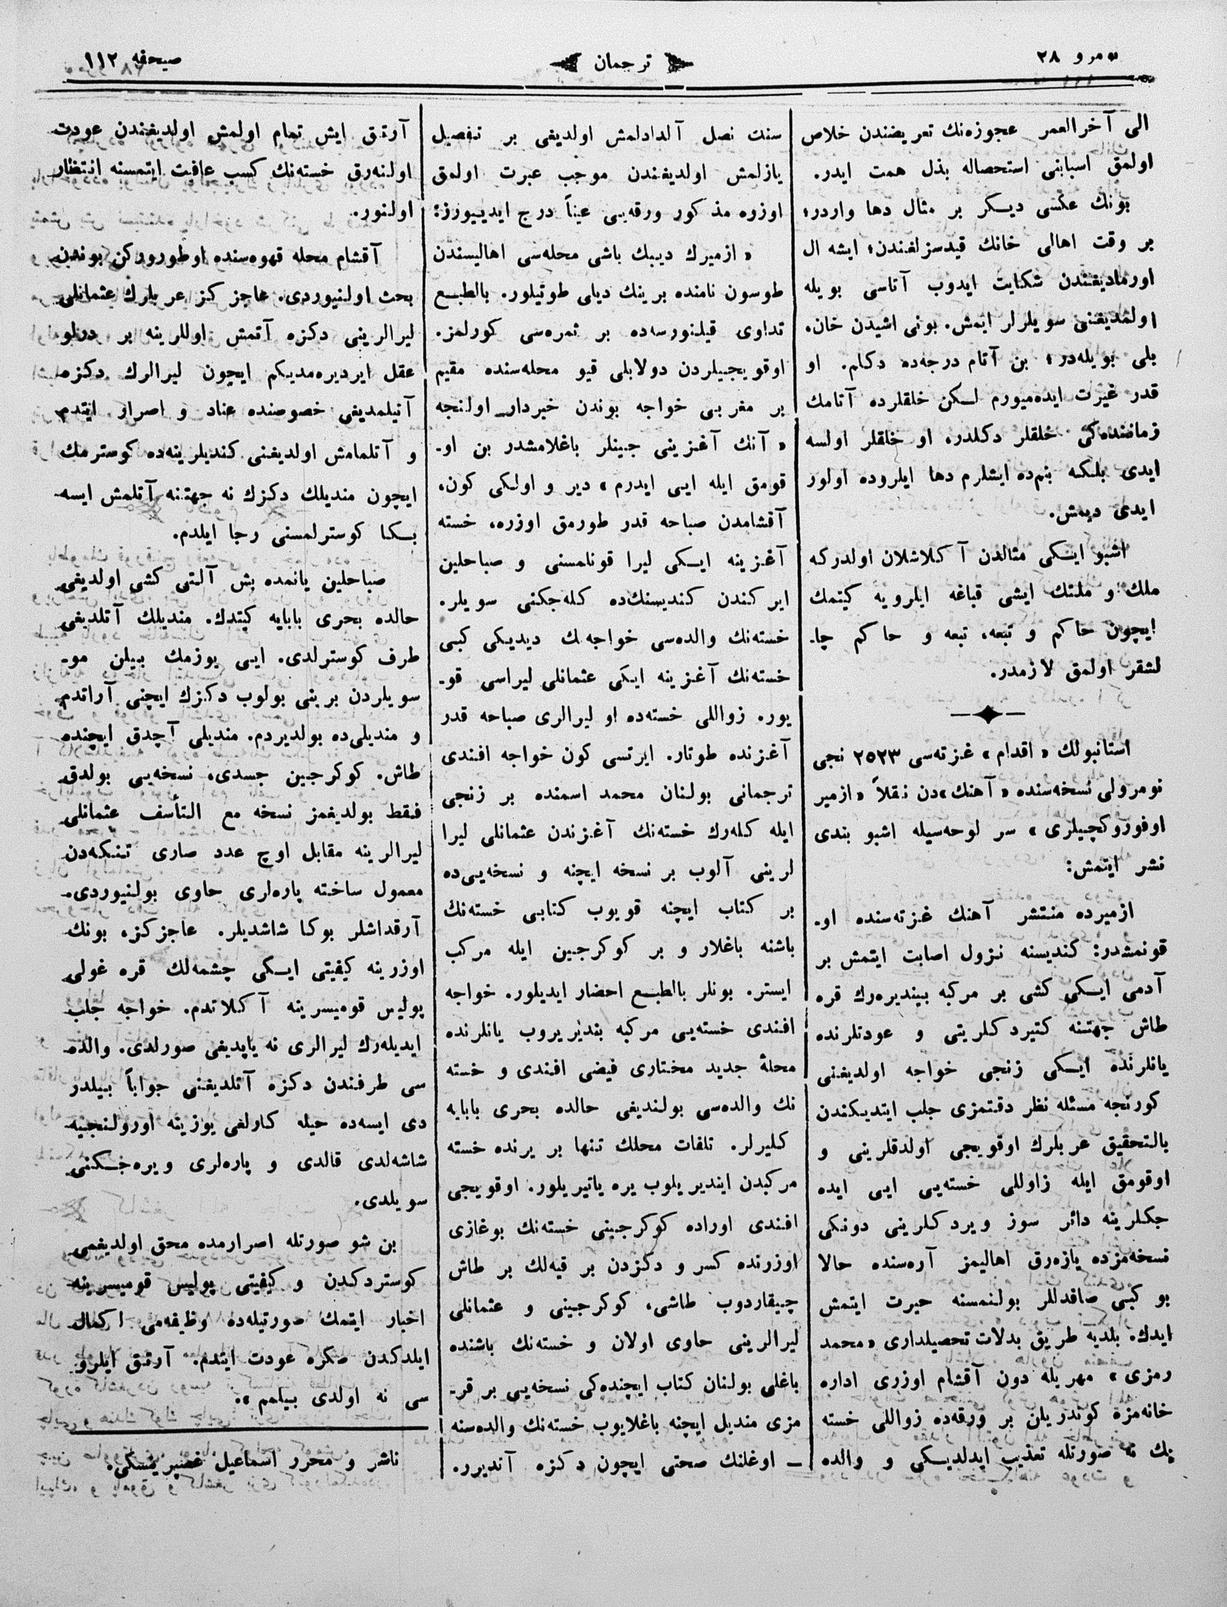 نومرو ٢٨
ترجمان
صحيفه ١١٢
الى آخرالعمر عجوزه‌نك تعريضندن خلاص
اولمق اسبابنى استحصاله بذل همت ايدر.
بونك عكسى ديكر بر مثال دها واردر؛
بر وقت اهالى خانك قيدسزلغندن، ايشه ال
اورماديغندن شكايت ايدوب آتاسى بويله
اولمديغنى سويلرلر ايمش. بونى اشيدن خان،
بلى بويله‌در؛ بن آتام درجه‌ده دكلم. او
قدر غيرت ايده‌ميورم لكن خلقلرده آتامك
زماننده‌كى خلقلر دكلدر، او خلقلر اولسه
ايدى بلكه بنم‌ده ايشلرم دها ايلروده اولور
ايدى ديمش.
اشبو ايكى مثالدن آكلاشلان اولدركه
ملك و ملتك ايشى قباغه ايلرويه كيتمك
ايچون حاكم و تبعه، تبعه و حاكم چا-
لشقر اولمق لازمدر.
استانبولك «اقدام» غزته‌سى ٢٥٢٣ نجى
نومرولى نسخه‌سنده «آهنك»دن نقلاً «ازمير
اوفوروكچيلرى» سر لوحه‌سيله اشبو بندى
نشر ايتمش:
ازميرده منتشر آهنك غزته‌سنده او-
قونمشدر: كنديسنه نزول اصابت ايتمش بر
آدمى ايكى كشى بر مركبه بينديره‌رك قره
طاش جهتنه كتيردكلريتى و عودتلرنده
يانلرنده ايكى زنجى خواجه اولديغنى
كورنجه مسئله نظر دقتمزى جلب ايتديكندن
بالتحقيق عربلرك اوقويجى اولدقلرينى و
اوقومق ايله زاوللى خسته‌يى ايى ايده
جكلرينه دائر سوز ويردكلرينى دونكى
نسخه‌مزده يازه‌رق اهاليمز آره‌سنده حالا
بو كبى صافدللر بولنمسنه حيرت ايتمش
ايدك. بلديه طريق بدلات تحصيلدارى «محمد
رمزى» مهريله دون آقشام اوزرى اداره
خانه‌مزه كوندريلان بر ورقه‌ده زواللى خسته
نك نه صورتله تعذيب ايدلديكى و والده
سنك نصل آلدادلمش اولديغى بر تفصيل
يازلمش اولديغندن موجب عبرت اولمق
اوزره مذكور ورقه‌يى عيناً درج ايدييورز:
«ازميرك ديبك باشى محله‌سى اهاليسندن
طوسون نامنده برينك ديلى طوتيلور. بالطبع
تداوى قيلنورسه‌ده بر ثمره‌سى كورلمز.
اوقويجيلردن دولابلى قيو محله‌سنده مقيم
بر مغربى خواجه بوندن خبردار اولنجه
«آنك آغزينى جينلر باغلامشدر بن او-
قومق ايله ايى ايدرم» دير و اولكى كون،
آقشامدن صباحه قدر طورمق اوزره، خسته
آغزينه ايكى ليرا قونلمسنى و صباحلين
ايركندن كنديسنك‌ده كله‌جكنى سويلر.
خسته‌نك والده‌سى خواجه‌ك ديديكى كبى
خسته‌نك آغزينه ايكى عثمانلى ليراسى قو-
يور. زواللى خسته‌ده او ليرالرى صباحه قدر
آغزنده طوتار. ايرتسى كون خواجه افندى
ترجمانى بولنان محمد اسمنده بر زنجى
ايله كله‌رك خسته‌نك آغزندن عثمانلى ليرا
لرينى آلوب بر نسخه ايچنه و نسخه‌يى‌ده
بر كتاب ايچنه قويوب كتابى خسته‌نك
باشنه باغلار و بر كوكرجين ايله مركب
ايستر. بونلر بالطبع احضار ايديلور. خواجه
افندى خسته‌يى مركبه بنديريروب يانلرنده
محلهٔ جديد مختارى فيضى افندى و خسته
نك والده‌سى بولنديغى حالده بحرى بابايه
كليرلر. تلقات محلك تنها بر يرنده خسته
مركبدن اينديريلوب يره ياتيريلور. اوقويجى
افندى اوراده كوكرجينى خسته‌نك بوغازى
اوزرنده كسر و دكزدن بر قيه‌لك بر طاش
چيقاردوب طاشى، كوكرجينى و عثمانلى
ليرالرينى حاوى اولان و خسته‌نك باشنده
باغلى بولنان كتاب ايچنده‌كى نسخه‌يى بر قر-
مزى منديل ايچنه باغلايوب خسته‌نك والده‌سنه
ـ اوغلنك صحتى ايچون دكزه آتديرر.
آرتق ايش تمام اولمش اولديغندن عودت
اولنه‌رق خسته‌نك كسب عافيت ايتمسنه انتظار
اولنور.
آقشام محله قهوه‌سنده اوطوروركن بوندن
بحث اولنيوردى. عاجزكز عربلرك عثمانلى
ليرالرينى دكزه آتمش اوللرينه بر درلو
عقل ايرديره‌مديكم ايچون ليرالرك دكزه
آتيلمديغى خصوصنده عناد و اصرار ايتدم
و آتلمامش اولديغنى كنديلرينه‌ده كوسترمك
ايچون منديلك دكزك نه جهتنه آتلمش ايسه
بكا كوسترلمسنى رجا ايلدم.
صباحلين يانمده بش آلتى كشى اولديغى
حالده بحرى بابايه كيتدك. منديلك آتلديغى
طرف كوسترلدى. ايى يوزمك بيلن مو-
سويلردن برينى بولوب دكزك ايچنى آراتدم
و منديلى‌ده بولديردم. منديلى آچدق ايچنده
طاش. كوكرجين جسدى، نسخه‌يى بولدق
فقط بولديغمز نسخه مع التأسف عثمانلى
ليرالرينه مقابل اوچ عدد صارى تنكه‌دن
معمول ساخته پاره‌لرى حاوى بولنيوردى.
آرقداشلر بوكا شاشديلر. عاجزكزه بونك
اوزرينه كيفيتى ايكى چشمه‌لك قره غولى
پوليس قوميسرينه آكلاتدم. خواجه جلب
ايديله‌رك ليرالرى نه ياپديغى صورلدى. والده
سى طرفندن دكزه آتلديغنى جواباً بيلدر
دى ايسه‌ده حيله كارلغى يوزينه اورولنجيه
شاشه‌لدى قالدى و پاره‌لرى ويره‌جكنى
سويلدى.
بن شو صورتله اصرارمده محق اولديغمى
كوستردكدن و كيفيتى پوليس قوميسرينه
اخبار ايتمك صورتيله‌ده وظيفه‌مى اكمال
ايلدكدن صكره عودت ايتدم. آرتق ايلرو
سى نه اولدى بيلمم».
ناشر و محرر اسماعيل غصپرينسكى.